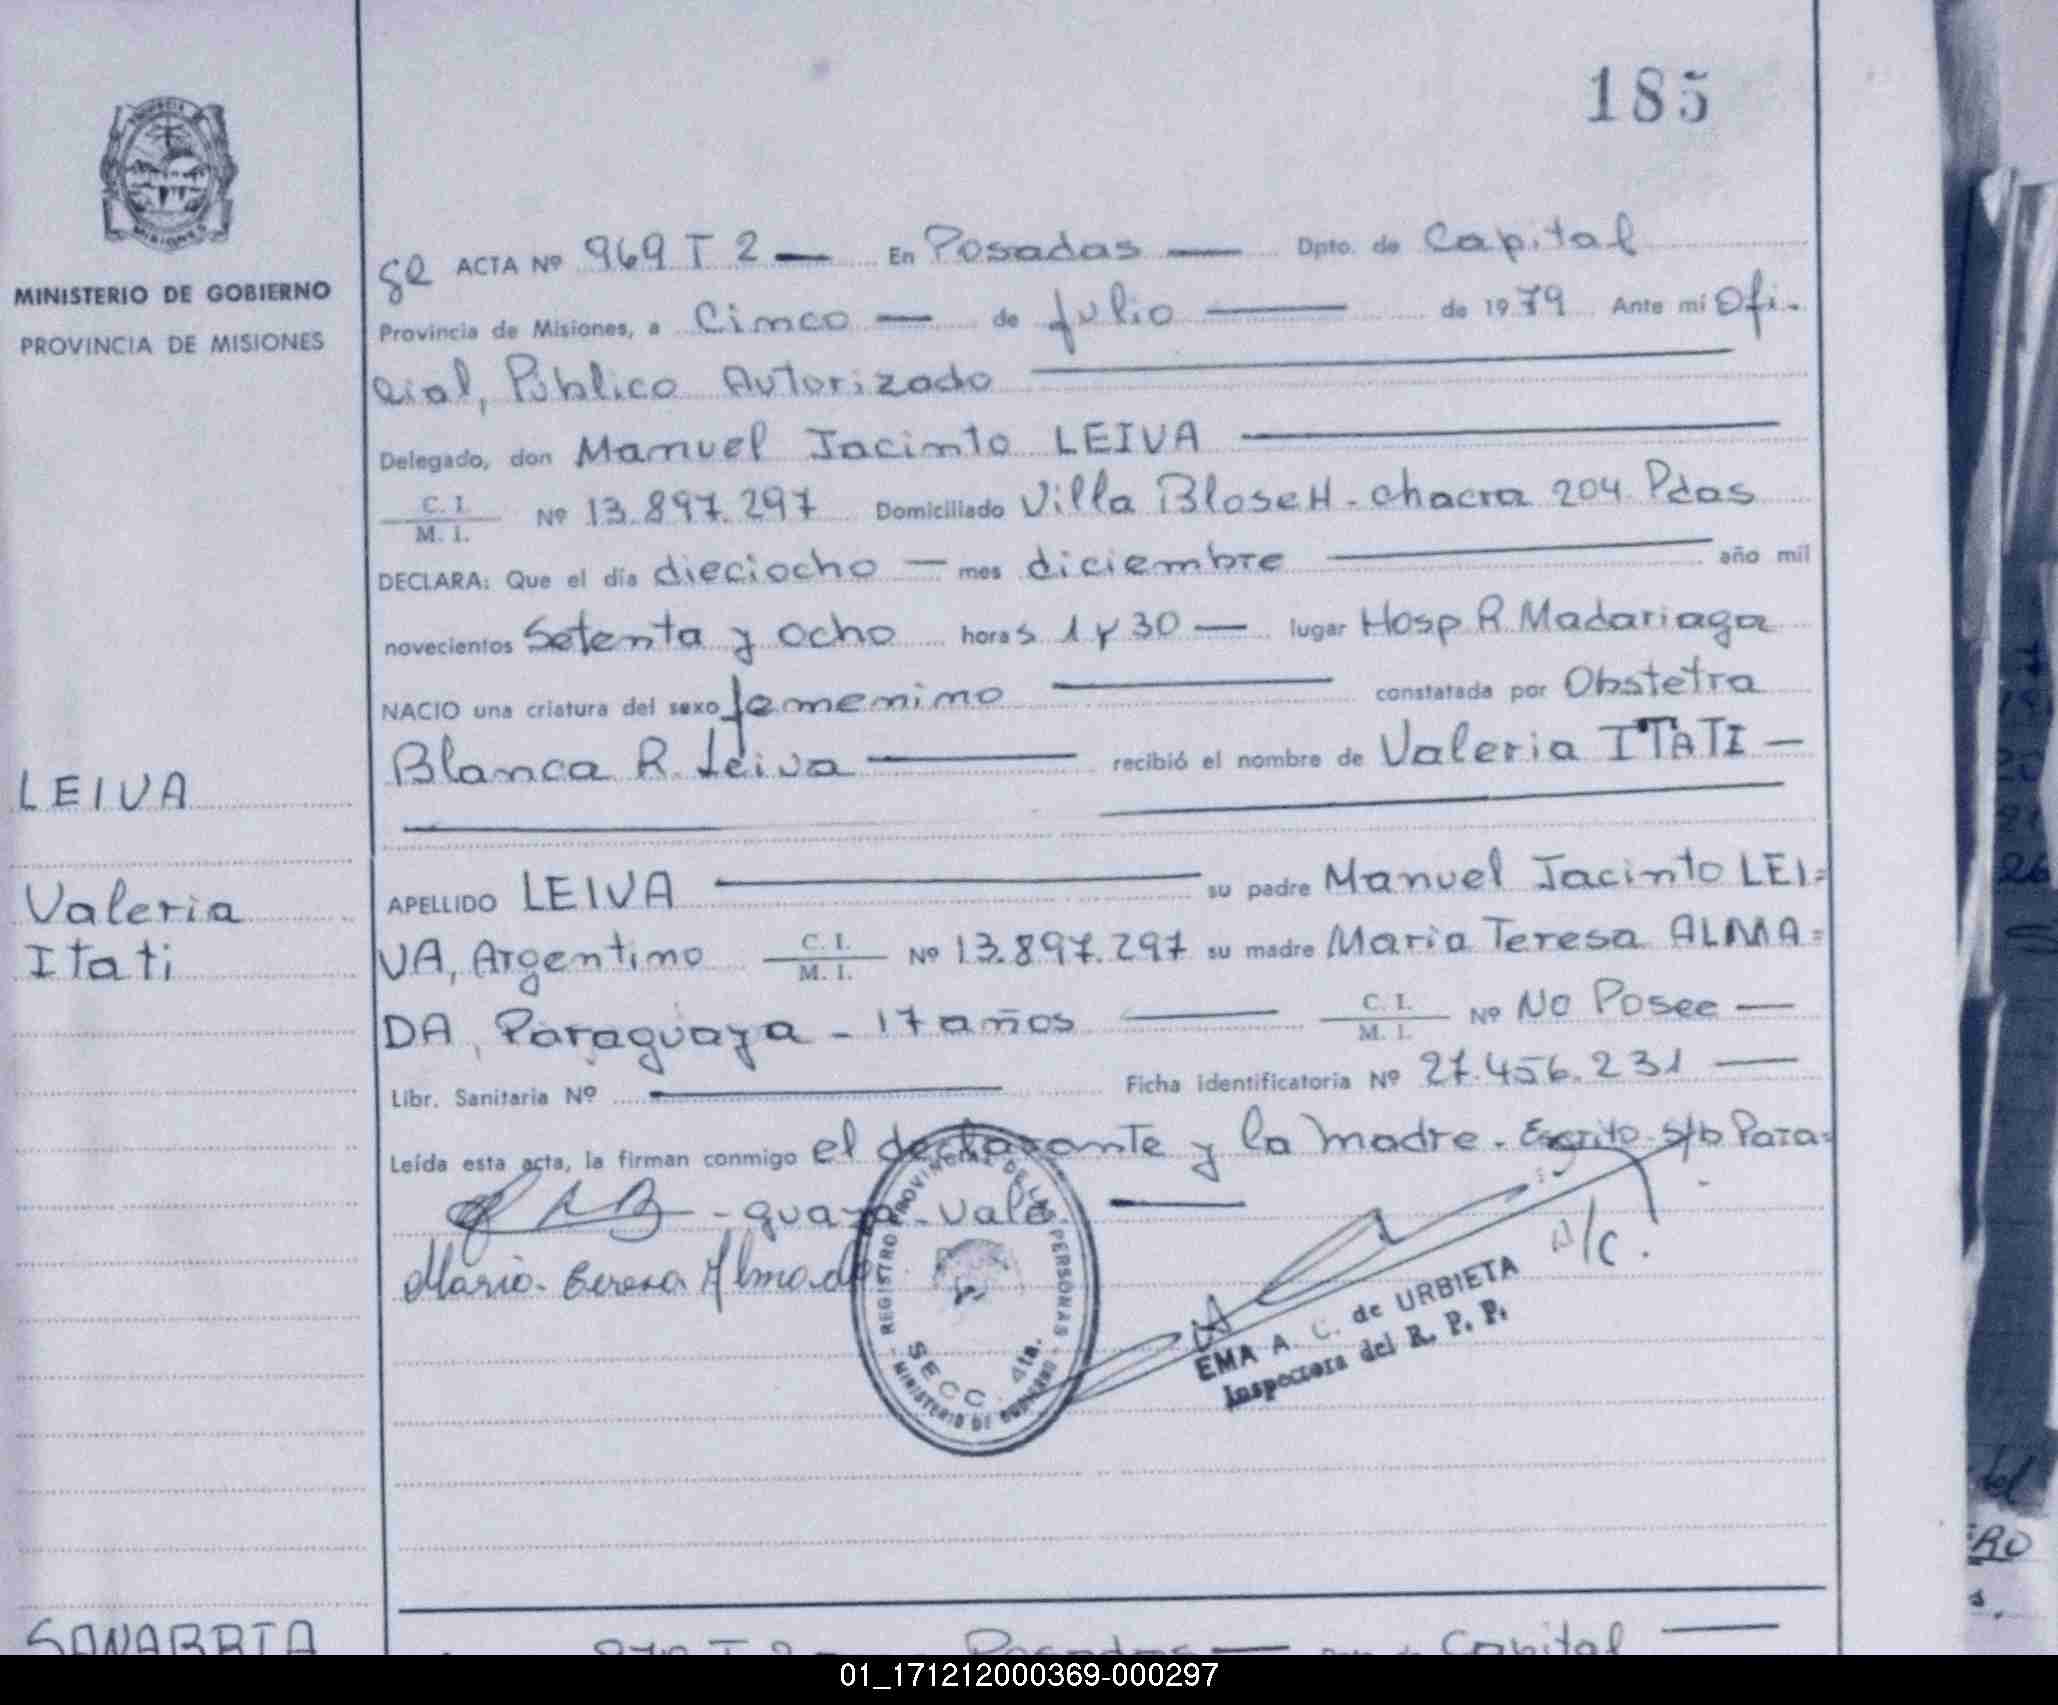 185
PROVINCIA
MISIONES
MINISTERIO DE GOBIERNO
PROVINCIA DE MISIONES
LEIVA
Valeria
Itati
ACTA Nº 969 T 2 — En Posadas — Dpto. de Capital
Provincia de Misiones, a Cinco — de julio — de 1979 Ante mí Ofi-
cial, Público Autorizado —
Delegado, don Manuel Jacinto LEIVA —
C. I.
M. I.
Nº 13.897.297 Domiciliado Villa BloseH - chacra 204 Pdas
DECLARA: Que el día dieciocho — mes diciembre — año mil
novecientos Setenta y ocho horas 1 y 30 — lugar Hosp R Madariaga
NACIO una criatura del sexo femenino — constatada por Obstetra
Blanca R. Leiva — recibió el nombre de Valeria ITATI —
APELLIDO LEIVA — su padre Manuel Jacinto LEI=
VA, Argentino C. I. M. I. Nº 13.897.297 su madre Maria Teresa ALMA=
DA, Paraguaya - 17 años — C. I. M. I. Nº No Posee —
Libr. Sanitaria Nº — Ficha identificatoria Nº 27.456.231 —
Leída esta acta, la firman conmigo el declarante y la madre. Escrito s/b Para=
- guaya - vale —
Maria Teresa Almada
REGISTRO PROVINCIAL DE LAS PERSONAS
SECC. 4ta.
MINISTERIO DE GOBIERNO
A/C.
EMA A. C. de URBIETA
Inspectora del R. P. P.
SANABRIA
970 T 2 — Posadas — Capital —
ERO
01_171212000369-000297